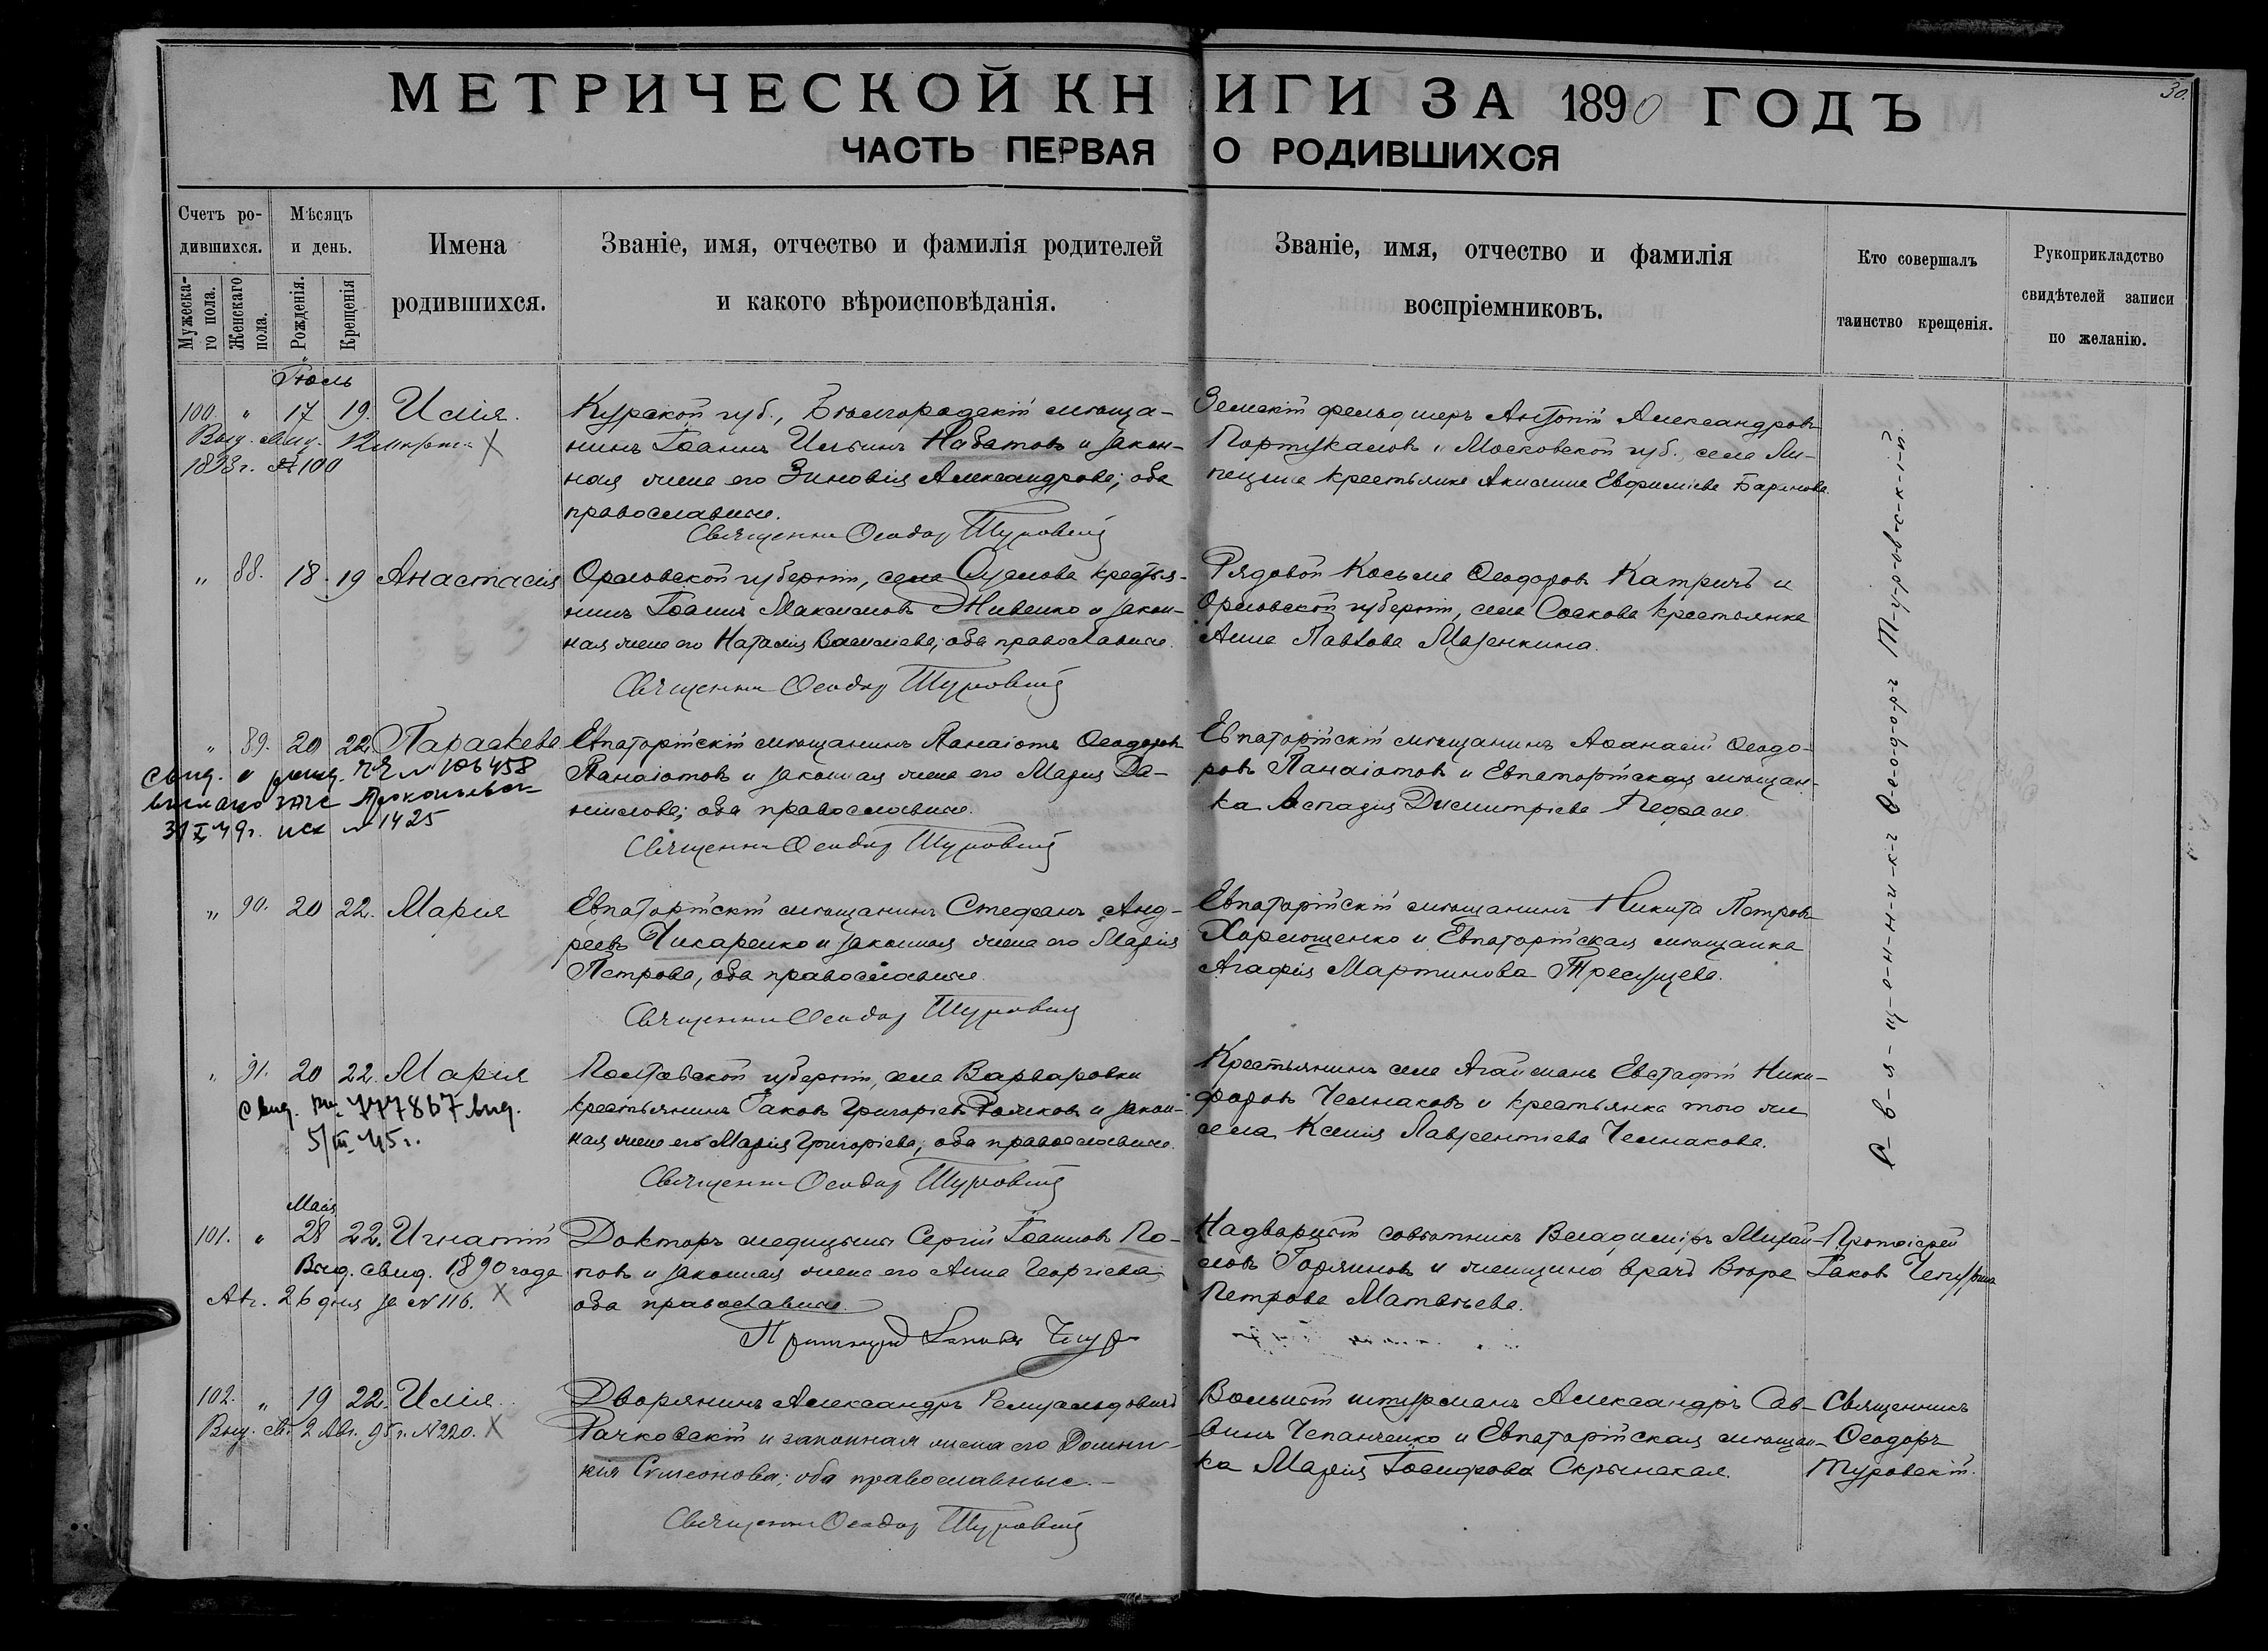 МЕТРИЧЕСКОЙ КНИГИ ЗА 1890 ГОДЪ
30.
ЧАСТЬ ПЕРВАЯ О РОДИВШИХСЯ
Счетъ ро-
дившихся.
Мужеска-
го пола.
Женскаго
пола.
Мѣсяцъ
и день.
Рожденія.
Крещенія
Имена
родившихся.
Званіе, имя, отчество и фамилія родителей
и какого вѣроисповѣданія.
Званіе, имя, отчество и фамилія
воспріемниковъ.
Кто совершалъ
таинство крещенія.
Рукоприкладство
свидѣтелей записи
по желанію.
Іюль
100. " 17 19. Илія.
1898 г. № 100
Курской губ., Бѣлгородскій мѣща-
нинъ Іоаннъ Ильинъ Набатовъ и закон-
ная жена его Зиновія Александрова; оба
православные.
Священникъ Ѳеодоръ Туровскій
Земскій фельдшеръ Антоній Александровъ
Портукаловъ и Московской губ., села Ли-
пецка крестьянка Акилина Евфиміева Баранова.
" 88. 18. 19 Анастасія
Орловской губерніи, села Суслова крестья-
нинъ Іоаннъ Максимовъ Живенко и закон-
ная жена его Наталія Васильева; оба православные.
Священникъ Ѳеодоръ Туровскій
Рядовой Косьма Ѳеодоровъ Катричъ и
Орловской губерніи, села Соскова крестьянка
Анна Павлова Мазенкина.
" 89. 20 22. Параскева
Свид. о рожд. № 106458
31 X 49г. исх № 1425
Евпаторійскій мѣщанинъ Панаіотъ Ѳеодоровъ
Панаіотовъ и законная жена его Марія Да-
ниилова; оба православные.
Священникъ Ѳеодоръ Туровскій
Евпаторійскій мѣщанинъ Аѳанасій Ѳеодо-
ровъ Панаіотовъ и Евпаторійская мѣщан-
ка Аспазія Димитріева
" 90. 20 22. Марія
Евпаторійскій мѣщанинъ Стефанъ Анд-
реевъ Чикаренко и законная жена его Марія
Петрова, оба православные.
Священникъ Ѳеодоръ Туровскій
Евпаторійскій мѣщанинъ Никита Петровъ
Харлющенко и Евпаторійская мѣщанка
Агафія Мартинова
" 91. 20 22. Марія
Свид. 777867 выд.
5/III 45 г.
Полтавской губерніи, села Варваровки
крестьянинъ Іаковъ Григорьевъ и закон-
ная жена его Марія Григорьева; оба православные.
Священникъ Ѳеодоръ Туровскій
Крестьянинъ села Агайманъ Евстафій Ники-
форовъ Челнаковъ и крестьянка того же
села Ксенія Лаврентіева Челнакова.
С-в-я-щ-е-н-н-и-к-ъ Ѳ-е-о-д-о-р-ъ Т-у-р-о-в-с-к-і-й.
Маія
101. " 28 22. Игнатій
Выд. свид. 1890 года
Авг. 26 дня за № 116. X
Докторъ медицины Сергій Іоанновъ По-
повъ и законная жена его Анна Георгіева;
оба православные.
Надворный совѣтникъ Владиміръ Михай-
ловъ Горяиновъ и женщина врачъ Вѣра
Петрова Матвѣева.
Протоіерей
Іаковъ
102. " 19 22. Илія.
Выд. св. 2 Авг. 95 г. № 220. X
Дворянинъ Александръ Ромуальдовичъ
Рачковскій и законная жена его Домни-
кія Симеонова; оба православные.-
Священникъ Ѳеодоръ Туровскій
Вольный штурманъ Александръ Сав-
винъ Чепанченко и Евпаторійская мѣщан-
ка Марія Іосифова Скрынская.
Священникъ
Ѳеодоръ
Туровскій.